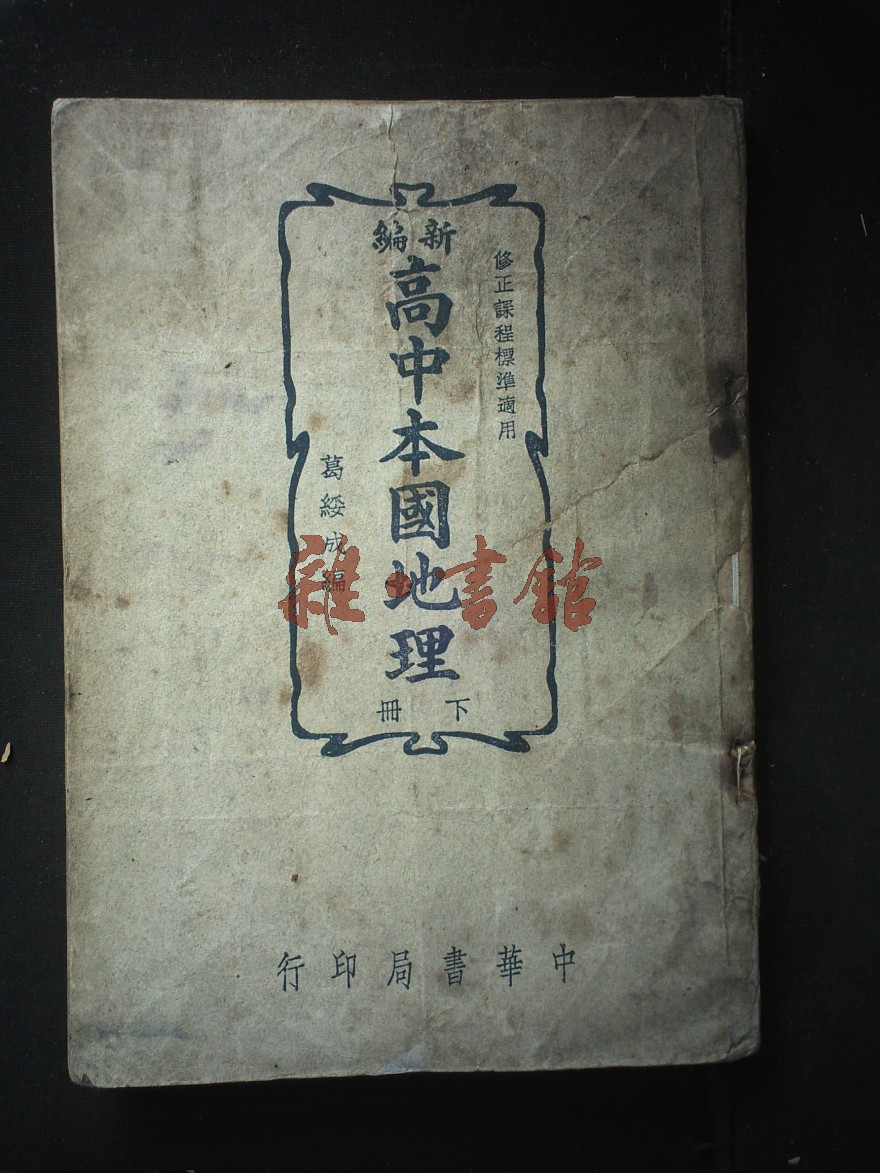 修正課程標準適用
新編
高中本國地理
下冊
葛綏成編
中華書局印行
雜·書館